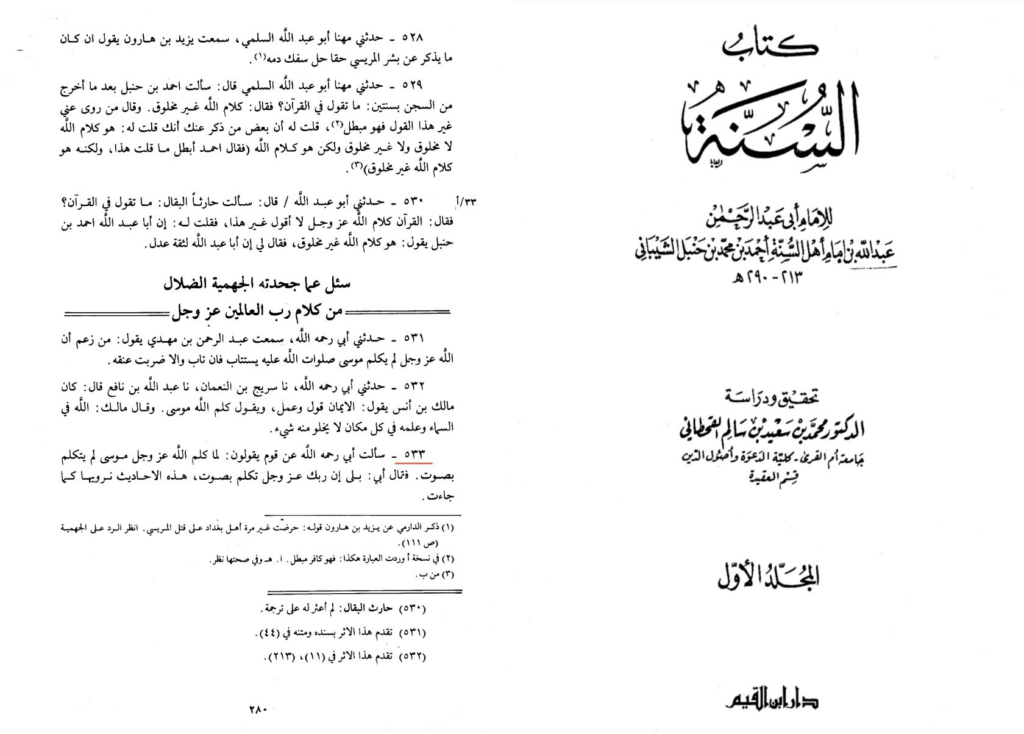 ٥٢٨ ـ حدثني مهنا أبو عبد اللَّه السلمي، سمعت يزيد بن هارون يقول ان كان
ما يذكر عن بشر المريسي حقا حل سفك دمه(١).
٥٢٩ ـ حدثني مهنا أبو عبد اللَّه السلمي قال: سألت احمد بن حنبل بعد ما أخرج
من السجن بسنتين: ما تقول في القرآن؟ فقال: كلام اللَّه غير مخلوق. وقال من روى عني
غير هذا القول فهو مبطل(٢)، قلت له أن بعض من ذكر عنك أنك قلت له: هو كلام اللَّه
لا مخلوق ولا غير مخلوق ولكن هو كلام اللَّه (فقال احمد أبطل ما قلت هذا، ولكنه هو
كلام اللَّه غير مخلوق)(٣).
٥٣٠ ـ حدثني أبو عبد اللَّه / قال: سألت حارثاً البقال: ما تقول في القرآن؟ ٣٣/أ
فقال: القرآن كلام اللَّه عز وجل لا أقول غير هذا، فقلت له: إن أبا عبد اللَّه احمد بن
حنبل يقول: هو كلام اللَّه غير مخلوق، فقال لي إن أبا عبد اللَّه لثقة عدل.
سئل عما جحدته الجهمية الضلال
من كلام رب العالمين عز وجل
٥٣١ ـ حدثني أبي رحمه اللَّه، سمعت عبد الرحمن بن مهدي يقول: من زعم أن
اللَّه عز وجل لم يكلم موسى صلوات اللَّه عليه يستتاب فان تاب والا ضربت عنقه.
٥٣٢ ـ حدثني أبي رحمه اللَّه، نا سريج بن النعمان، نا عبد اللَّه بن نافع قال: كان
مالك بن أنس يقول: الايمان قول وعمل، ويقول كلم اللَّه موسى. وقال مالك: اللَّه في
السماء وعلمه في كل مكان لا يخلو منه شيء.
٥٣٣ ـ سألت أبي رحمه اللَّه عن قوم يقولون: لما كلم اللَّه عز وجل موسى لم يتكلم
بصوت. فقال أبي: بلى إن ربك عز وجل تكلم بصوت، هذه الاحاديث نرويها كما
جاءت.
(١) ذكر الدارمي عن يزيد بن هارون قوله: حرضت غير مرة أهل بغداد على قتل المريسي. انظر الرد على الجهمية
(ص ١١١).
(٢) في نسخة أ وردت العبارة هكذا: فهو كافر مبطل. ا. هـ وفي صحتها نظر.
(٣) من ب.
(٥٣٠) حارث البقال: لم أعثر له على ترجمة.
(٥٣١) تقدم هذا الاثر بسنده ومتنه في (٤٤).
(٥٣٢) تقدم هذا الاثر في (١١)، (٢١٣).
٢٨٠
كتاب
السُّنَّة
للإمام أبي عبد الرَّحمٰن
عبد اللّه بن إمام أهل السُّنّة أحمد بن محمد بن حنبل الشيباني
٢١٣ - ٢٩٠ هـ
تحقيق ودراسة
الدكتور محمد بن سعيد بن سالم القحطاني
جامعة أم القرى - كلية الدعوة وأصول الدين
قسم العقيدة
المجلّد الأول
دار ابن القيم